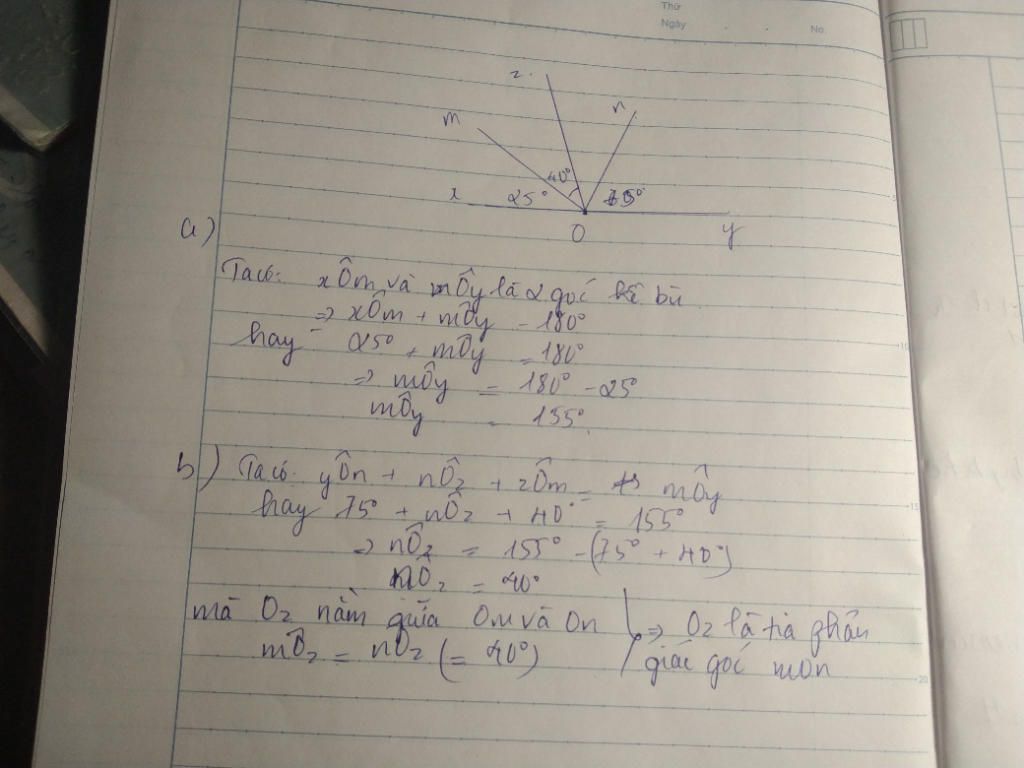 Thứ
Ngày
No.
z
n
m
40°
x
25°
75°
O
y
a)
Ta có: xÔm và mÔy là 2 góc kề bù
=> xÔm + mÔy = 180°
hay 25° + mÔy = 180°
=> mÔy = 180° - 25°
mÔy = 155°
b) Ta có: yÔn + nÔz + zÔm = mÔy
hay 75° + nÔz + 40° = 155°
=> nÔz = 155° - (75° + 40°)
nÔz = 40°
mà Oz nằm giữa Om và On
mÔz = nÔz (= 40°)
=> Oz là tia phân
giác góc mOn